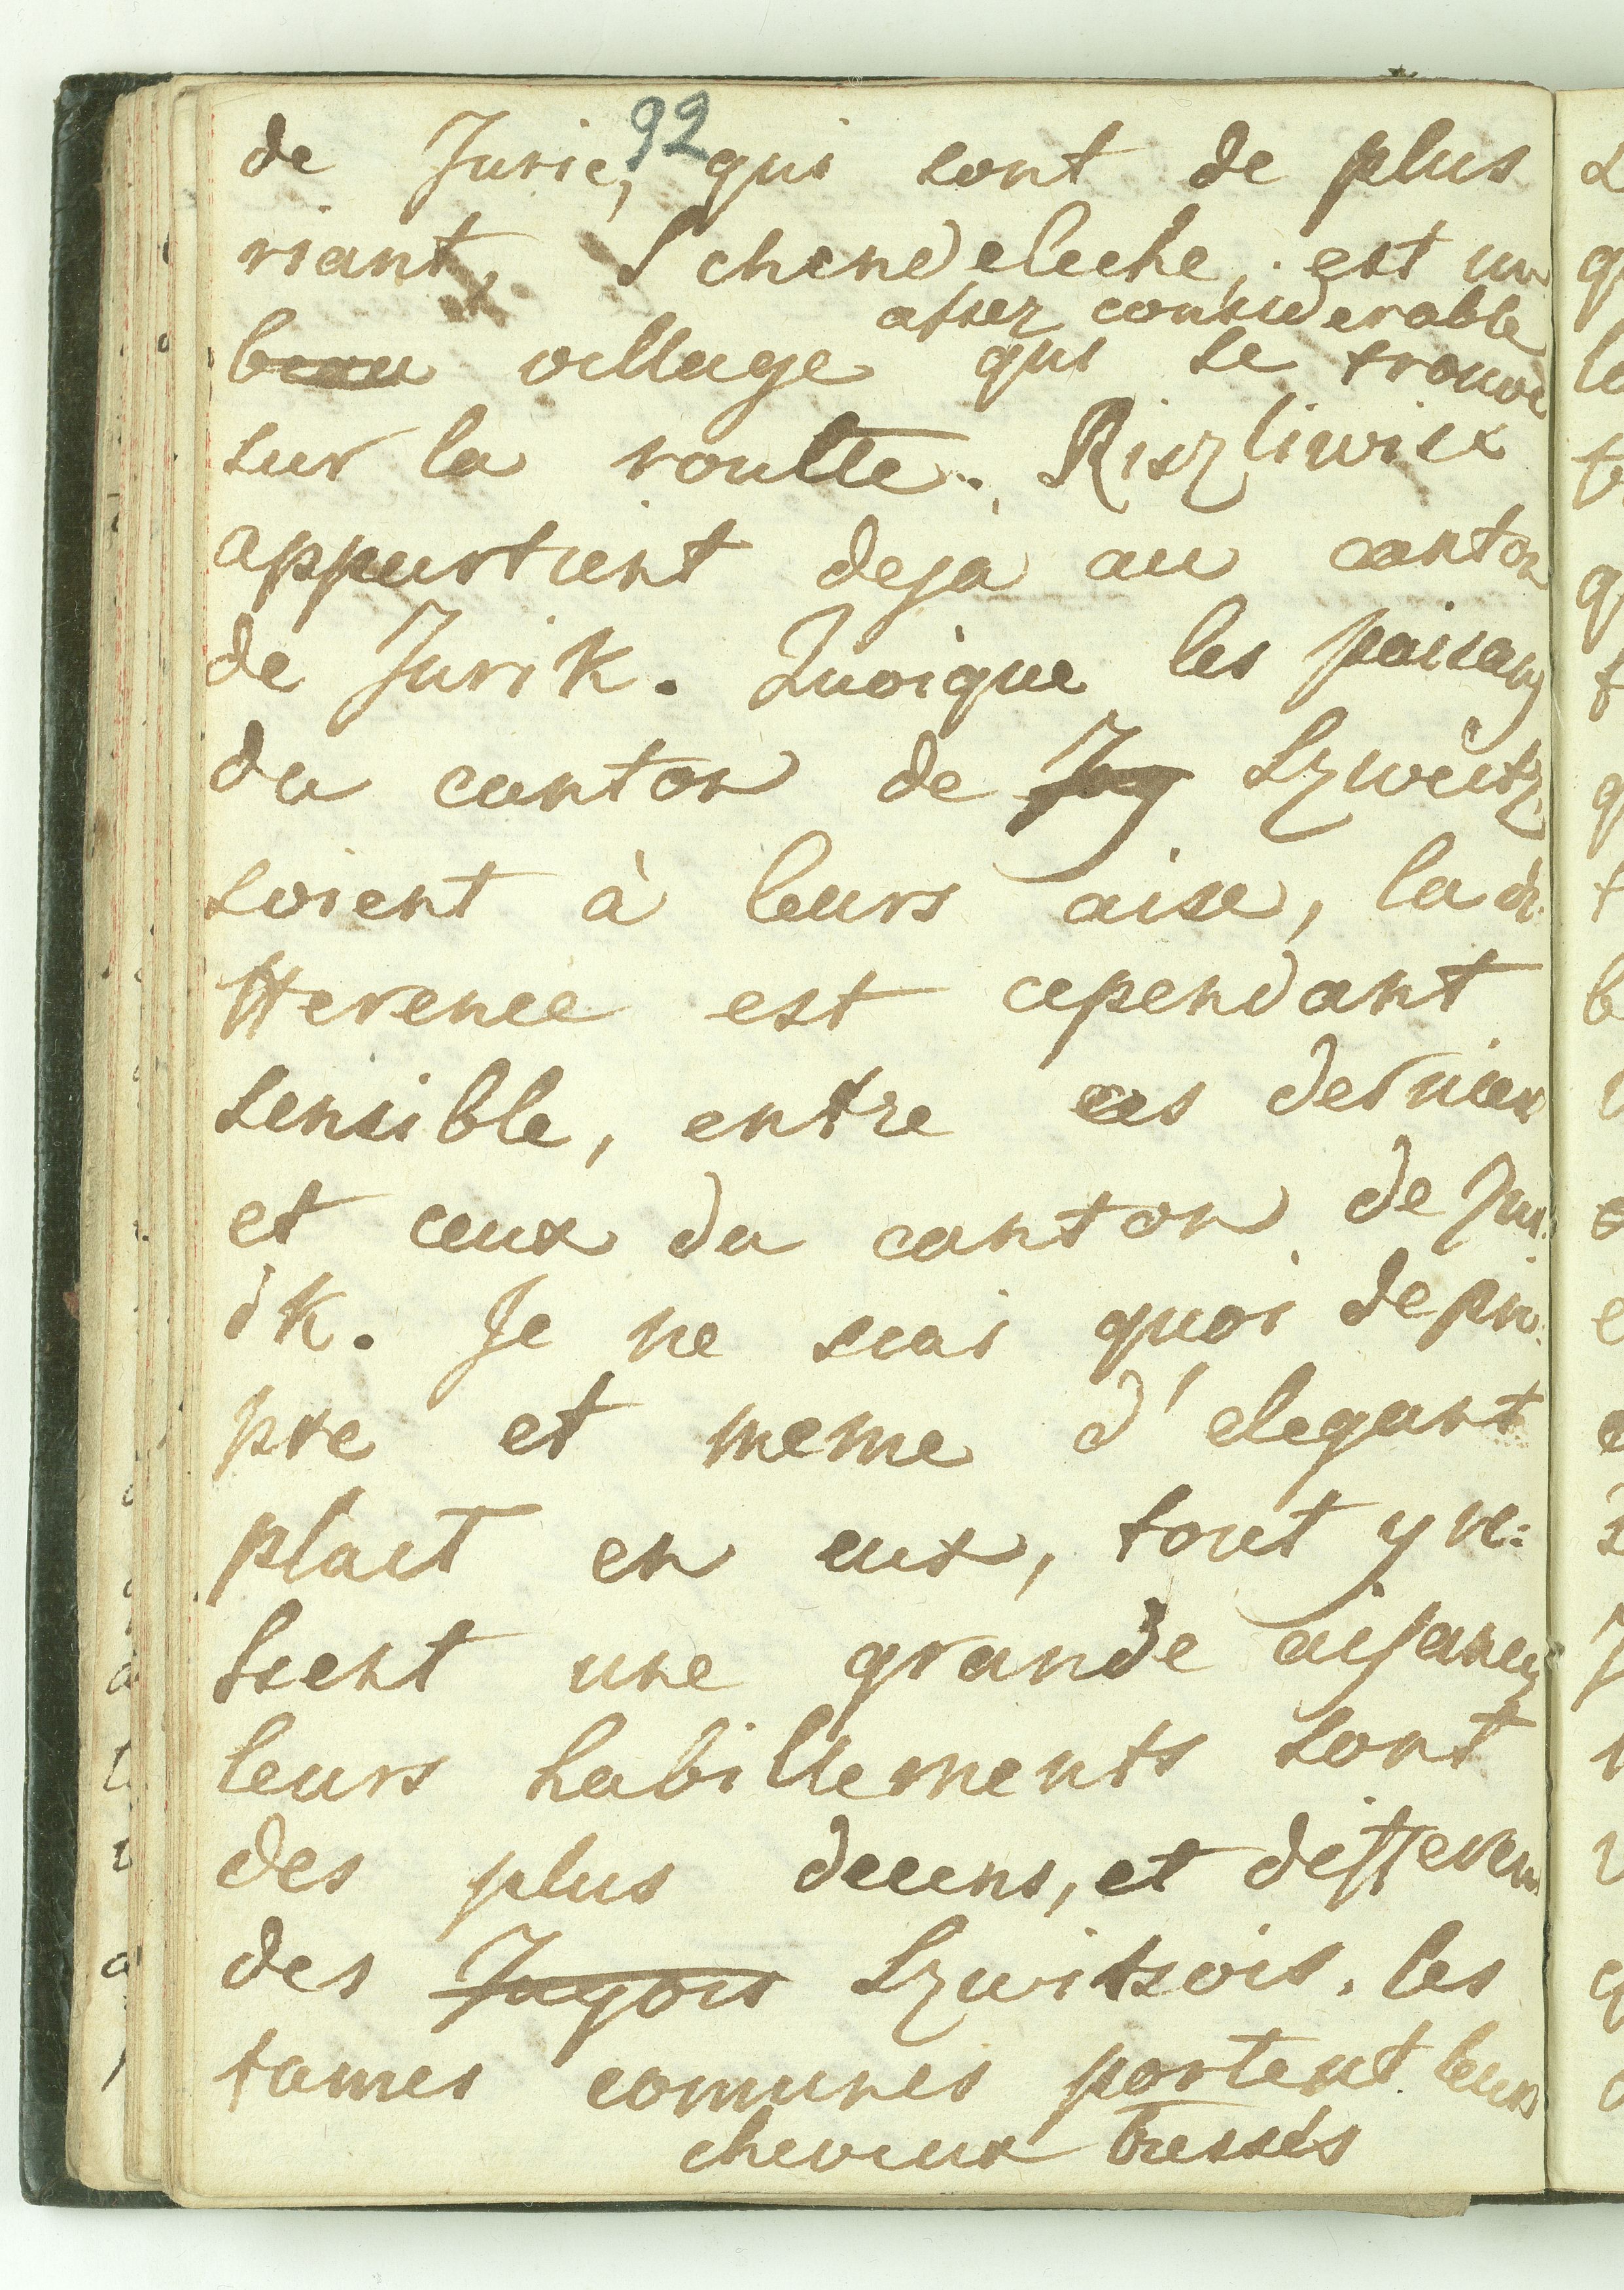 92
de Juric, qui sont de plus
riant, Schendeleche, est un
assez considerable
beau village qui se trouve
sur la routte. Riszliwiex
appartient deja au canton
de Jurik. Quoique les paisans
du canton de Jug Szweitz,
soient à leurs aise, la di:
fference est cependant
sensible, entre ces derniers
et ceux du canton de Jur:
ik. Je ne scai quoi de pro:
pre et meme d'elegant
plait en eux, tout y re:
ssent une grande aisance,
leurs habillements sont
des plus decens, et differens
des Jugois Szwitzois. les
fames comunes portent leurs
cheveux tressés